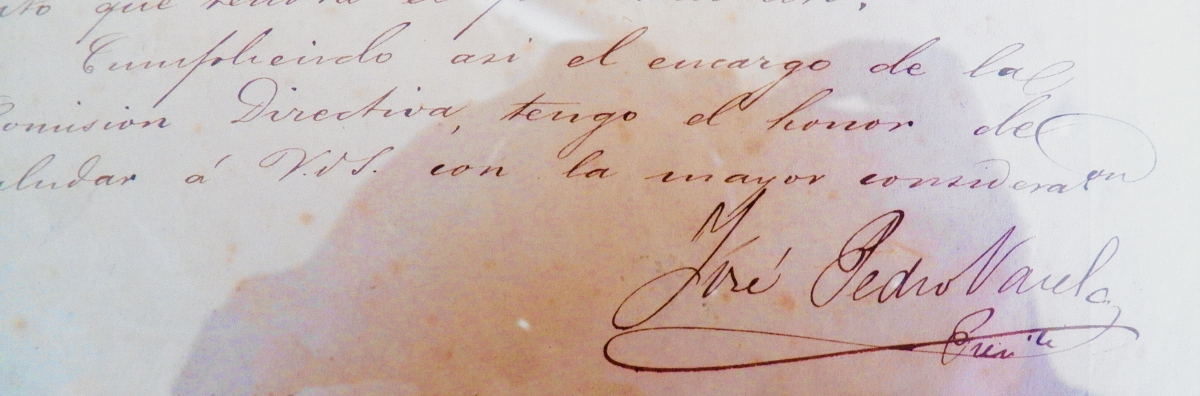 que tendrá el
Cumpliendo asi el encargo de la
Comision Directiva, tengo el honor de
saludar á V.dS. con la mayor consideraon
José Pedro Varela
Presite